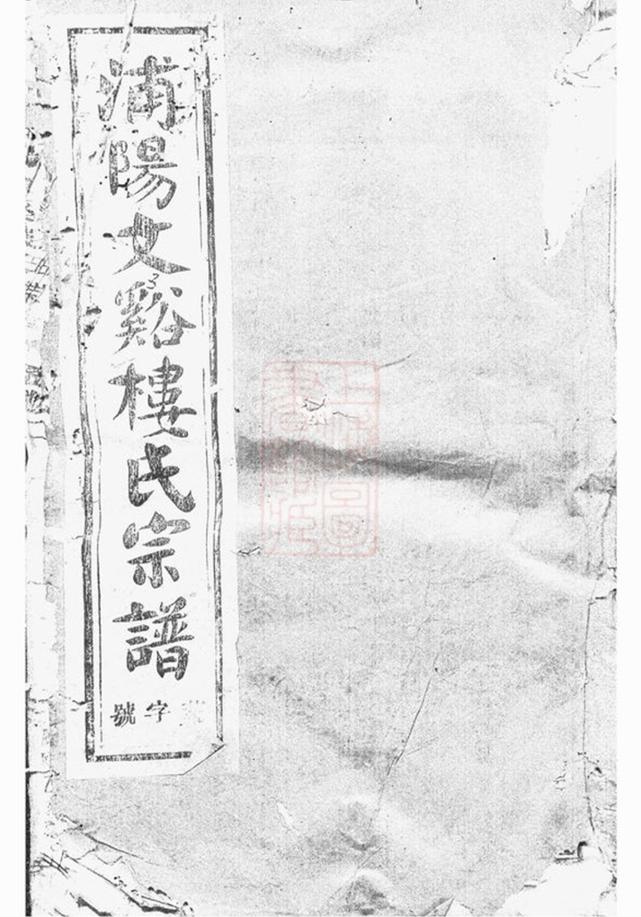 浦陽文谿樓氏宗譜
字號